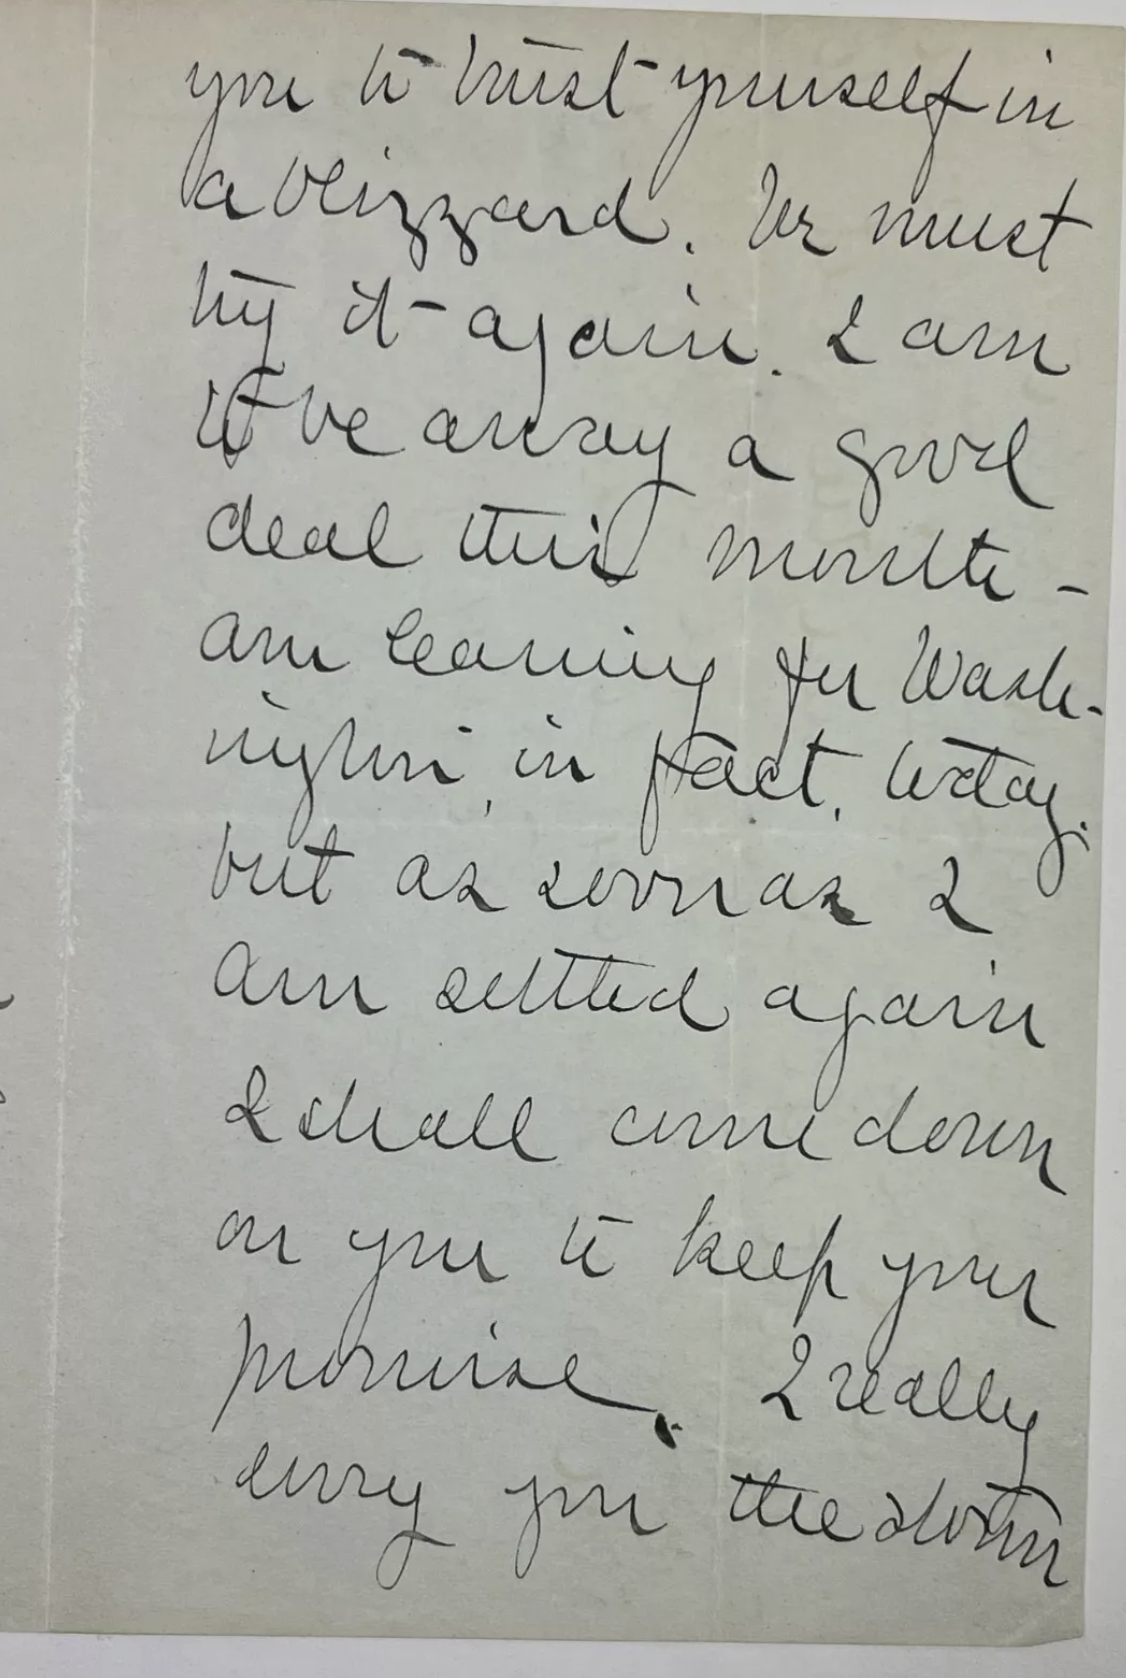 you to trust yourself in
a blizzard. We must
try it again. I am
to be away a good
deal this month -
am leaving for Wash-
ington, in fact, today.
but as soon as I
am settled again
I shall come down
on you to keep your
promise. I really
envy you the storm